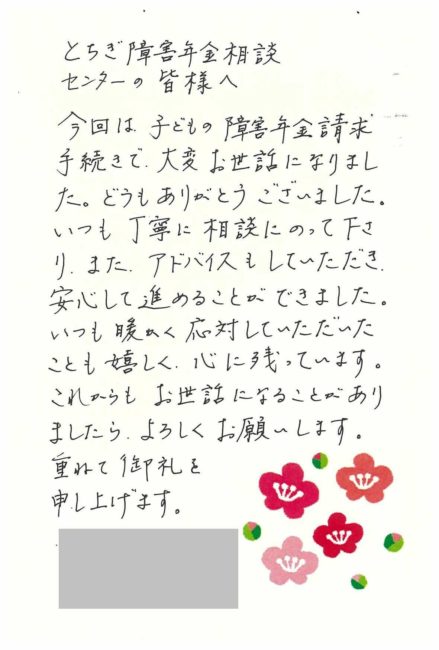 とちぎ障害年金相談
センターの皆様へ
今回は、子どもの障害年金請求
手続きで、大変お世話になりまし
た。どうもありがとうございました。
いつも丁寧に相談にのって下さ
り、また、アドバイスもしていただき、
安心して進めることができました。
いつも暖かく応対していただいた
ことも嬉しく、心に残っています。
これからもお世話になることがあり
ましたら、よろしくお願いします。
重ねて御礼を
申し上げます。